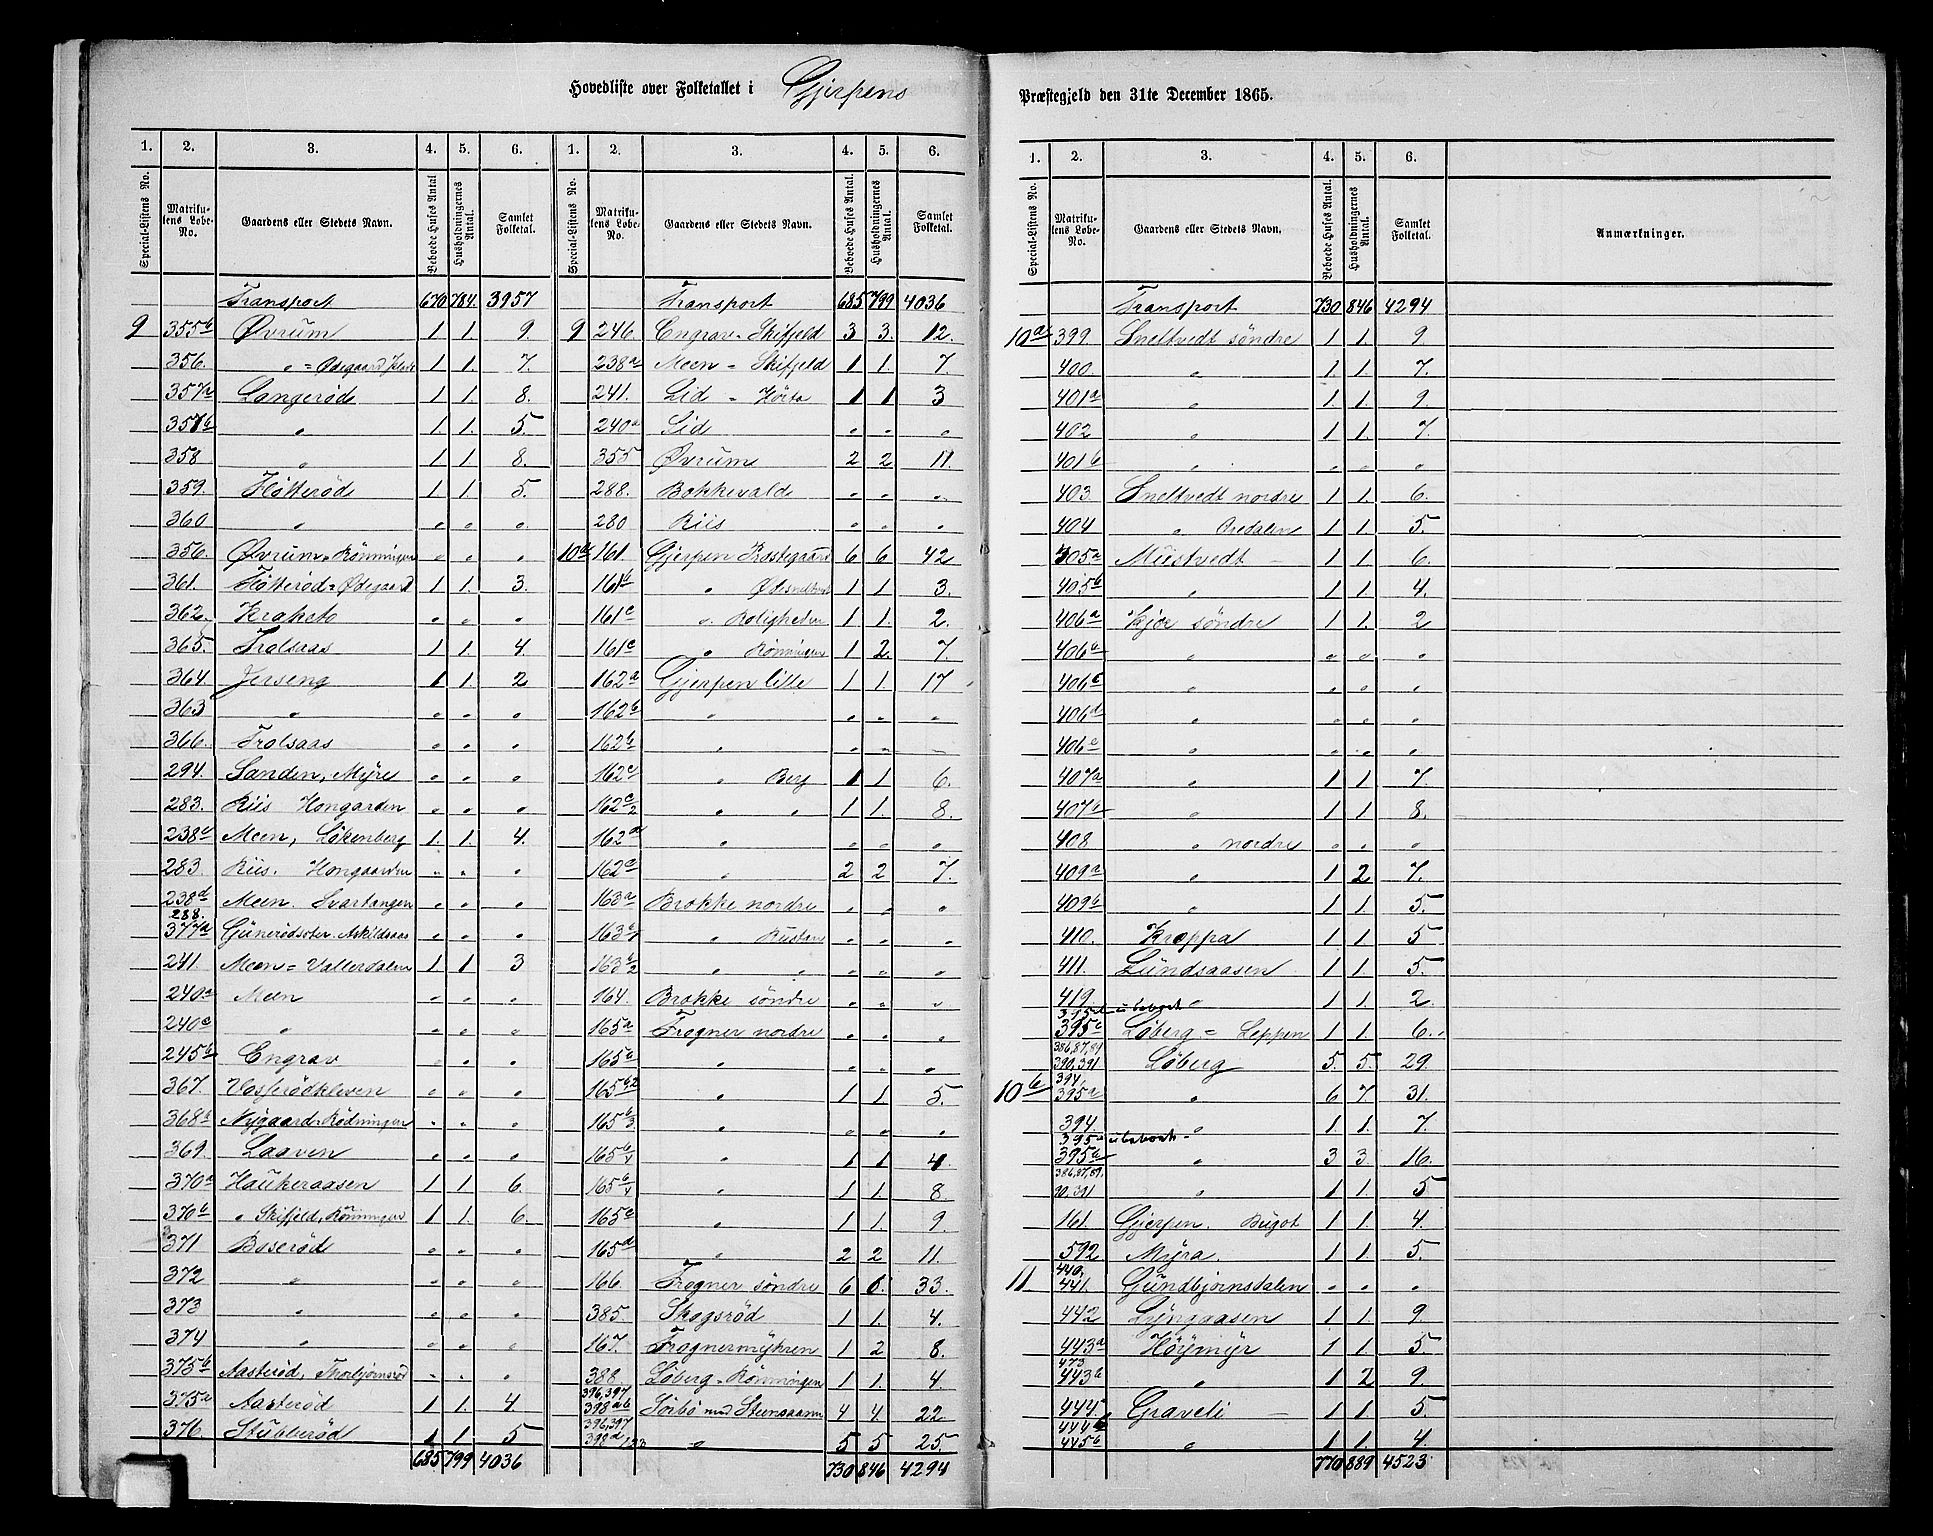 Hovedliste over Folketallet i Gjerpens Præstegjeld den 31te December 1865.
1. 2. 3. 4. 5. 6. 1. 2. 3. 4. 5. 6.
Special-Listens No. Matrikulens Løbe-No. Gaardens eller Stedets Navn. Beboede Huses Antal Husholdningernes Antal. Samlet Folketal. Special-Listens No. Matrikulens Løbe-No. Gaardens eller Stedets Navn. Beboede Huses Antal. Husholdningernes Antal. Samlet Folketal.
Transport 670 784. 3957
9 355b Øvrum 1 1. 9.
356. " = Ødegaard 1 1. 7.
357a Langerød 1 1 8.
357b " 1. 1. 5.
358 " 1 1. 8.
359. Fløtterød 1 1 5.
360 " " " "
356. Øvrum = Rönningen " " "
361. Fløtterød = Ødegaard 1 1. 3.
362. Kraketo " " "
365. Trolsaas 1 1 4
364. Jerseng 1 1. 2
363 " " " "
366. Trolsaas " " "
294. Sanden, Myre " " "
283. Riis Hongarden " " "
238c Meen, Lökenberg 1. 1. 4.
283. Riis. Hongaarden " " "
238d Meen. Svartangen " " "
288.
377a Günerødsæter. Askildsaas " " "
241. Meen = Vallerdalen 1 1 3
240a Meen " " "
240c " " " "
245b Engrav " " "
367. Vasserødkleven " " "
368a Nygaard = Rödningen " " "
369. Laaven " " "
370a Haukeraasen 1 1 6.
370b " Skifjeld, Rönningen 1 1. 6.
371 Boserød " " "
372 " " " "
373 " " " "
374 " " " "
375b Aasterød, Thorbjörnsrød " " "
375a Aasterød 1 1. 4.
376. Stubberød 1 1. 5
685 799 4036
Transport 685 799 4036
9 246. Engrav = Skifjeld 3 3. 12.
238a Meen = Skifjeld 1 1. 7.
241. Lid = Hörta 1 1 3
240a Lid " " "
355 Øvrum 2 2 11.
288. Bokkevald " " "
280 Riis " " "
10a 161. Gjerpen Præstegaard 6 6 42
161b " 1 1. 3.
161c " Roligheten 1 1. 2.
161c " Rönningen 1 2. 7.
162a Gjerpen lille 1 1. 17
162b " " " "
162b " " "
162c " Berg 1 1 6.
162c/2 " " 1 1. 8.
162d " " " "
162e " 2 2 7.
163a Brokke nordre " " "
163 " Rustan " " "
163 " " " " "
164. Brokke söndre " " "
165a Frogner nordre " " "
165a " " " "
165 b2 " 1 1 5.
165 b/3 " " " "
165 b/4 " 1 1 4
165 b/4 " 1 1. 8
165a " 1 1. 9.
165d " 2 2 11.
166. Frogner söndre 6 6. 33.
385. Skogsröd 1 1. 4.
167. Frognermyhren 1 2 8.
388. Løberg = Rönningen 1 1. 4.
396,397
398ab Sörbö med Stensaaen 4 4 22
396,397
398d " 5 5 25.
730 846 4294
1. 2. 3. 4. 5. 6.
Special-Listens No. Matrikulens Løbe-No. Gaardens eller Stedets Navn. Beboede Huses Antal. Husholdningernes Antal. Samlet Folketal. Anmærkninger.
Transport 730 846 4294
10a 399. Sneltvedt söndre 1 1. 9
400. " 1. 1. 7.
401a " 1. 1. 9.
402 " 1 1. 7.
401b " " " "
403. Sneltvedt nordre 1 1. 6.
404 " Øredalen 1 1. 5.
405a Mustvedt 1 1. 6.
405b " 1 1. 4.
406a Kjær söndre 1 1. 2
406b " " " "
406c " " " "
406d " " " "
406e " " " "
407a " 1 1. 7.
407b " 1 1. 8.
408 " nordre " " "
409a " 1 2 7.
409b " 1 1. 5.
410. Kroppa 1 1. 5
411. Lundsaasen 1 1. 5.
419. " 1 1. 2.
ubeboet
395c Løberg = Leppen 1 1. 6.
386,87,89
390,391 Løberg 5. 5. 29.
10b 394,
395a " 6 7 31.
394. " 1 1. 7.
395a ubeboet
395b " 3 3. 16.
386,87,89.
90,391 " 1 1. 5
161. Gjerpen. Bugot 1 1. 4.
592 Myra. 1 1. 5.
11 440,
441. Gundbjørnsdalen " " "
442 Lyngaasen 1 1. 9
443a Höymyr 1 1. 5
473
443b " 1 2 9.
444. Graveli 1 1. 5.
444b
445b " 1 1. 4.
770 889 4523